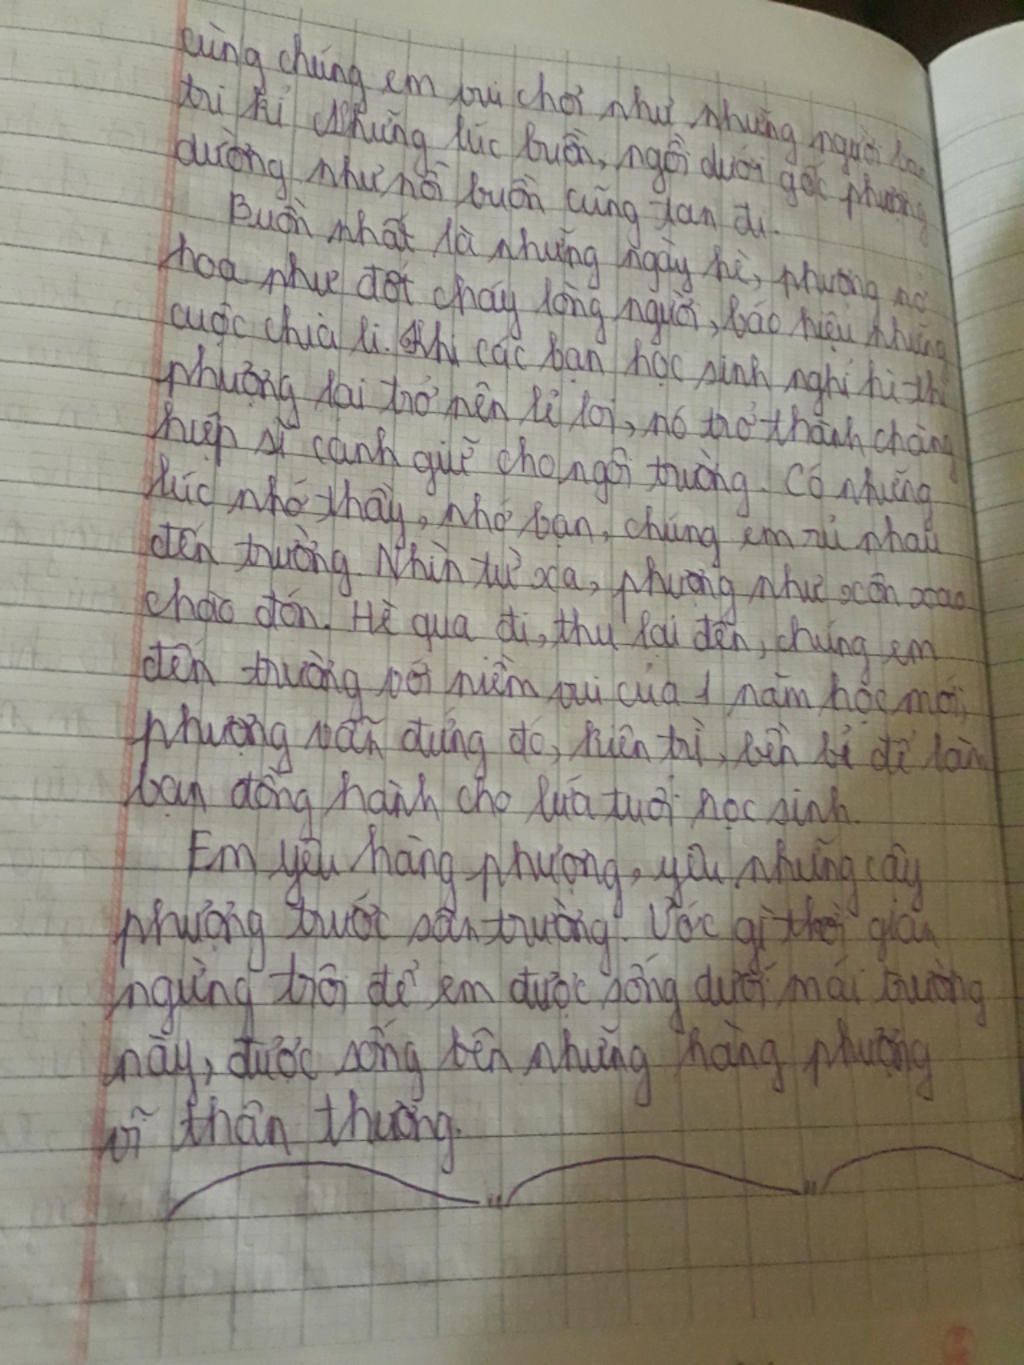 cùng chúng em vui chơi như những người bạn
tri kỉ những lúc buồn, ngồi dưới gốc phượng
dường như nỗi buồn cũng tan đi.
Buồn nhất là những ngày hè, phượng nở
hoa như đốt cháy lòng người, báo hiệu những
cuộc chia li. Khi các bạn học sinh nghỉ hè thì
phượng lại trở nên lẻ loi, nó trở thành chàng
hiệp sĩ canh giữ cho ngôi trường. Có những
lúc nhớ thầy, nhớ bạn, chúng em rủ nhau
đến trường Nhìn từ xa, phượng như xôn xao
chào đón. Hè qua đi, thu lại đến, chúng em
đến trường với niềm vui của 1 năm học mới,
phượng vẫn đứng đó, kiên trì, bền bỉ để làm
bạn đồng hành cho lứa tuổi học sinh.
Em yêu hàng phượng, yêu những cây
phượng trước sân trường. Ước gì thời gian
ngừng trôi để em được sống dưới mái trường
này, được sống bên những hàng phượng
vĩ thân thương.